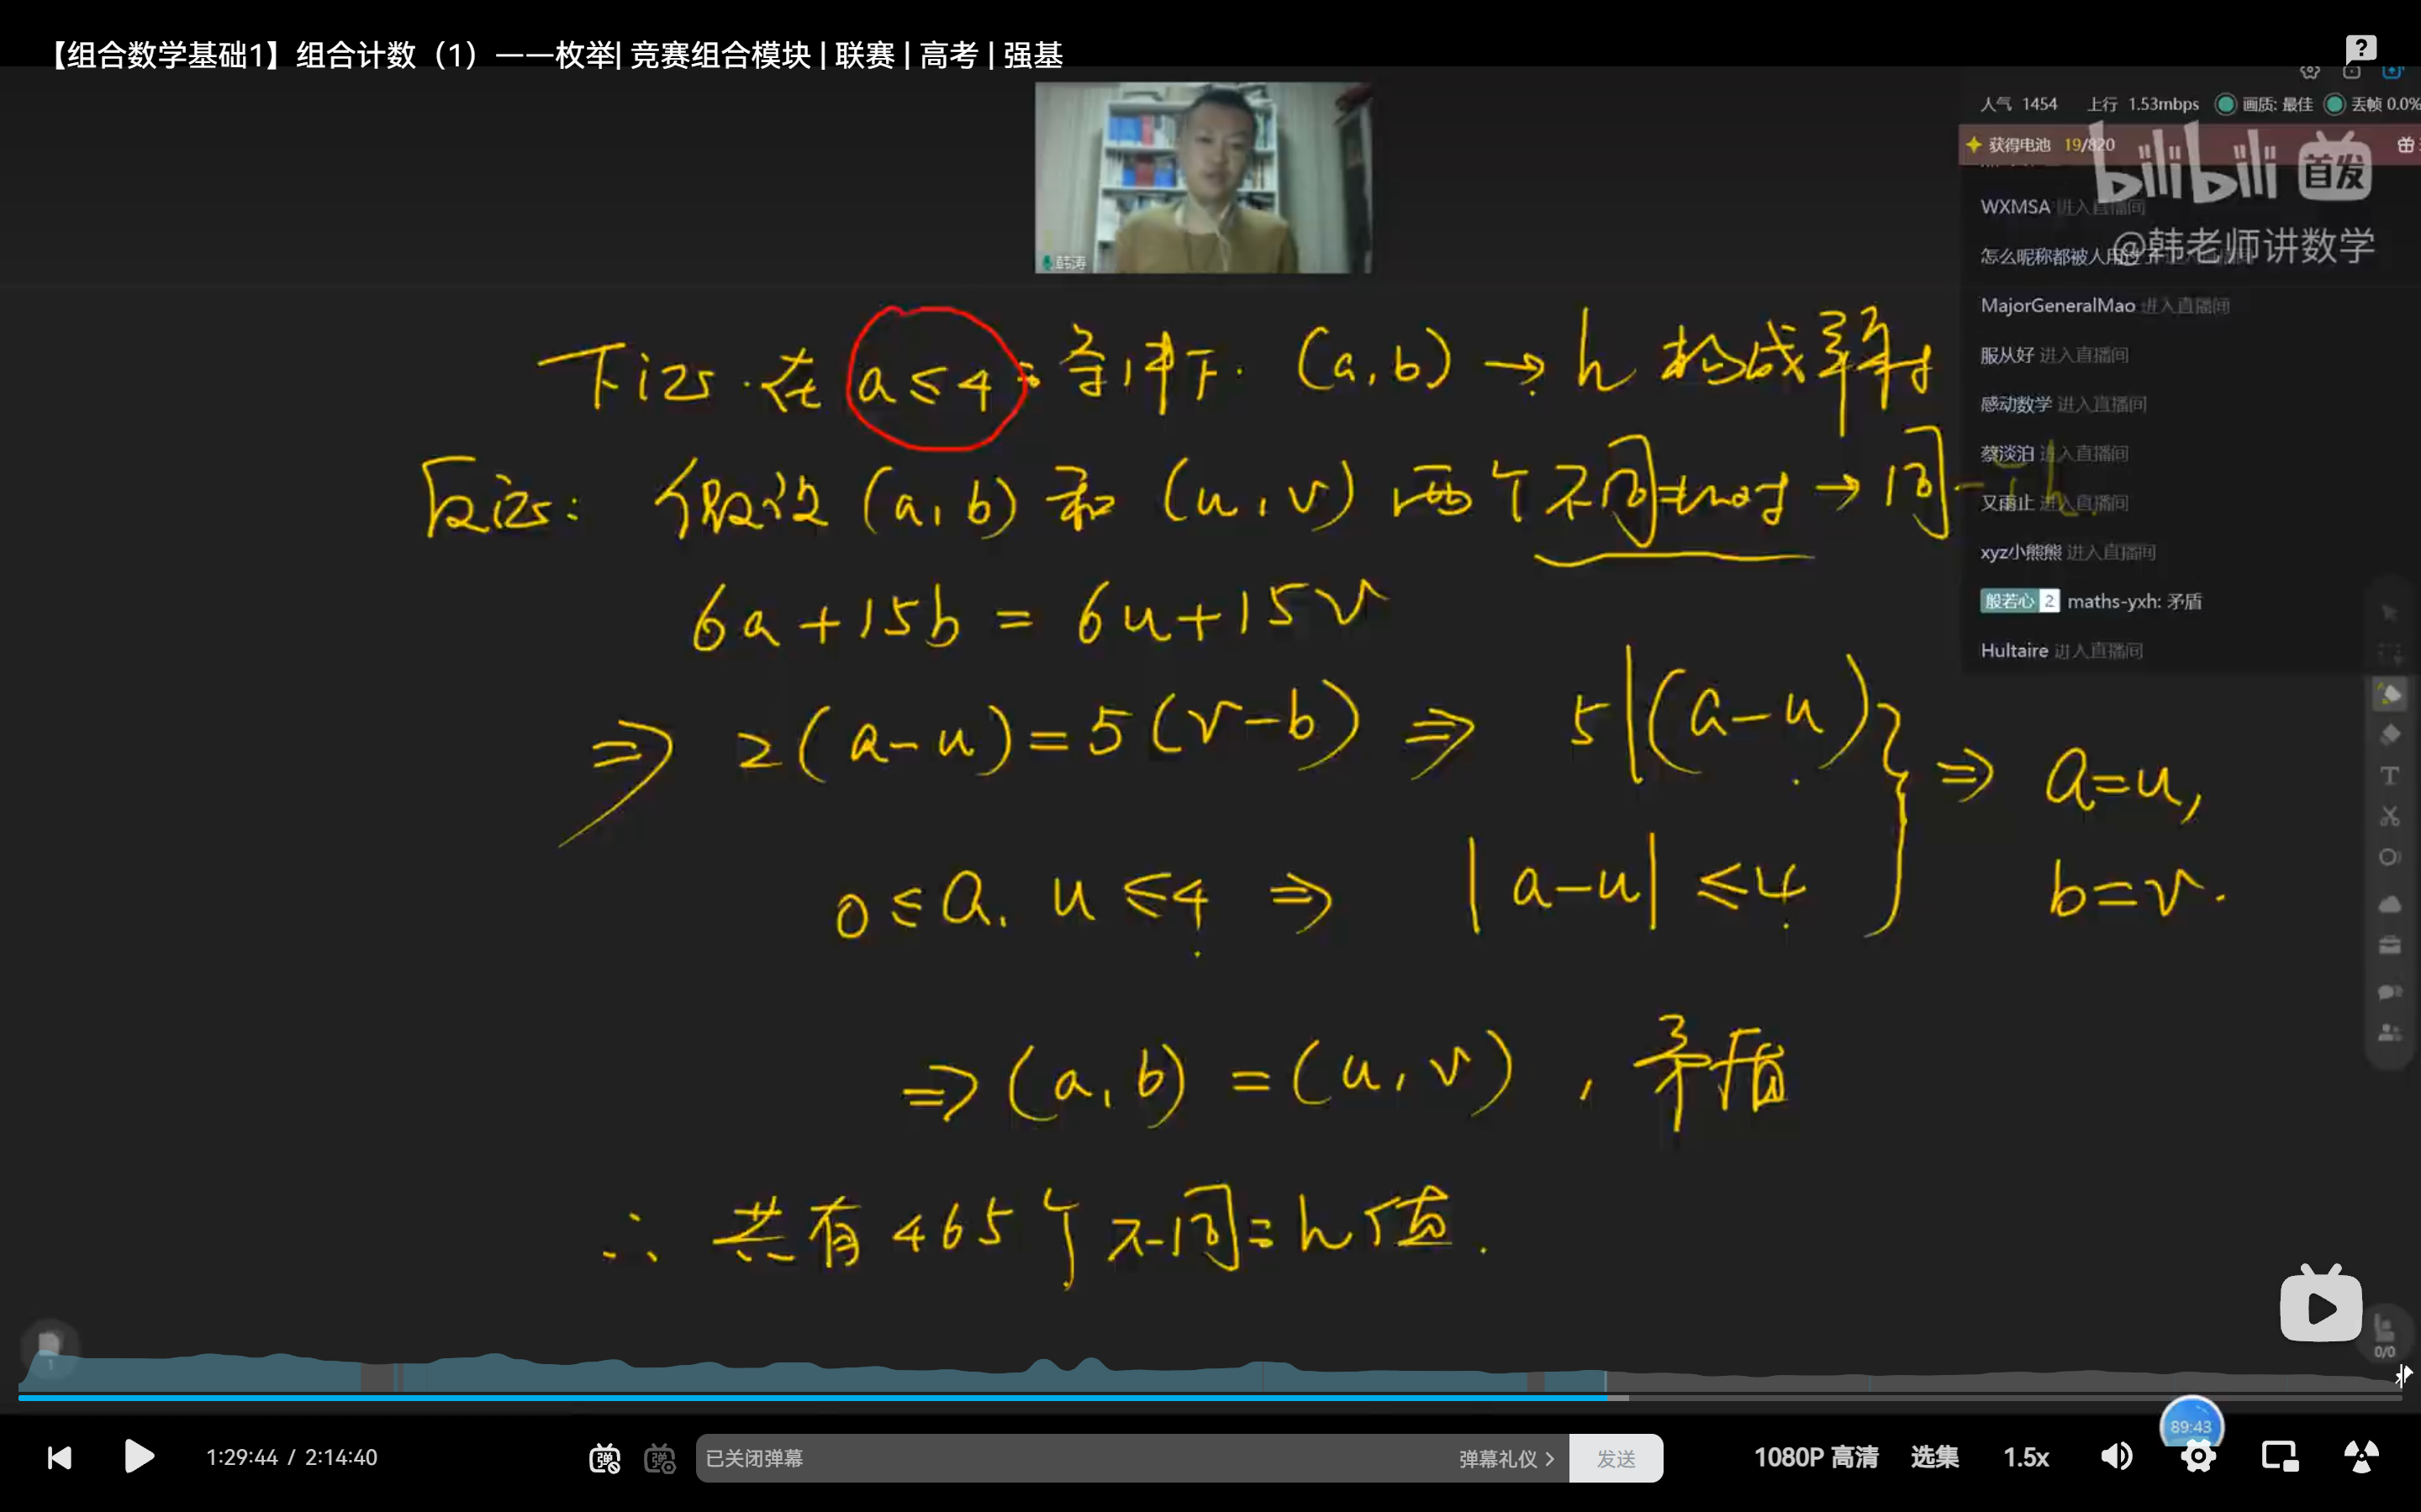 【组合数学基础1】组合计数（1）——枚举| 竞赛组合模块 | 联赛 | 高考 | 强基
人气 1454 上行 1.53mbps 画质: 最佳 丢帧 0.0%
获得电池 19/820
bilibili 首发
WXMSA 进入直播间
@韩老师讲数学
怎么昵称都被人用过了
MajorGeneralMao 进入直播间
服从好 进入直播间
感动数学 进入直播间
蔡淡泊 进入直播间
又雨止 进入直播间
xyz小熊熊 进入直播间
般若心 2 maths-yxh: 矛盾
Hultaire 进入直播间
韩涛
下证.在 a≤4 条件下. (a,b) → h 构成单射
反证: 假设 (a,b) 和 (u,v) 两个不同 → 同一 h
6a+15b = 6u+15v
⇒ 2(a-u)=5(v-b) ⇒ 5|(a-u) } ⇒ a=u,
0≤a, u≤4 ⇒ |a-u|≤4 b=v.
⇒(a,b)=(u,v), 矛盾
∴ 共有465个不同之h值.
T
1
0/0
89:43
1:29:44 / 2:14:40
弹
弹
已关闭弹幕
弹幕礼仪 >
发送
1080P 高清
选集
1.5x